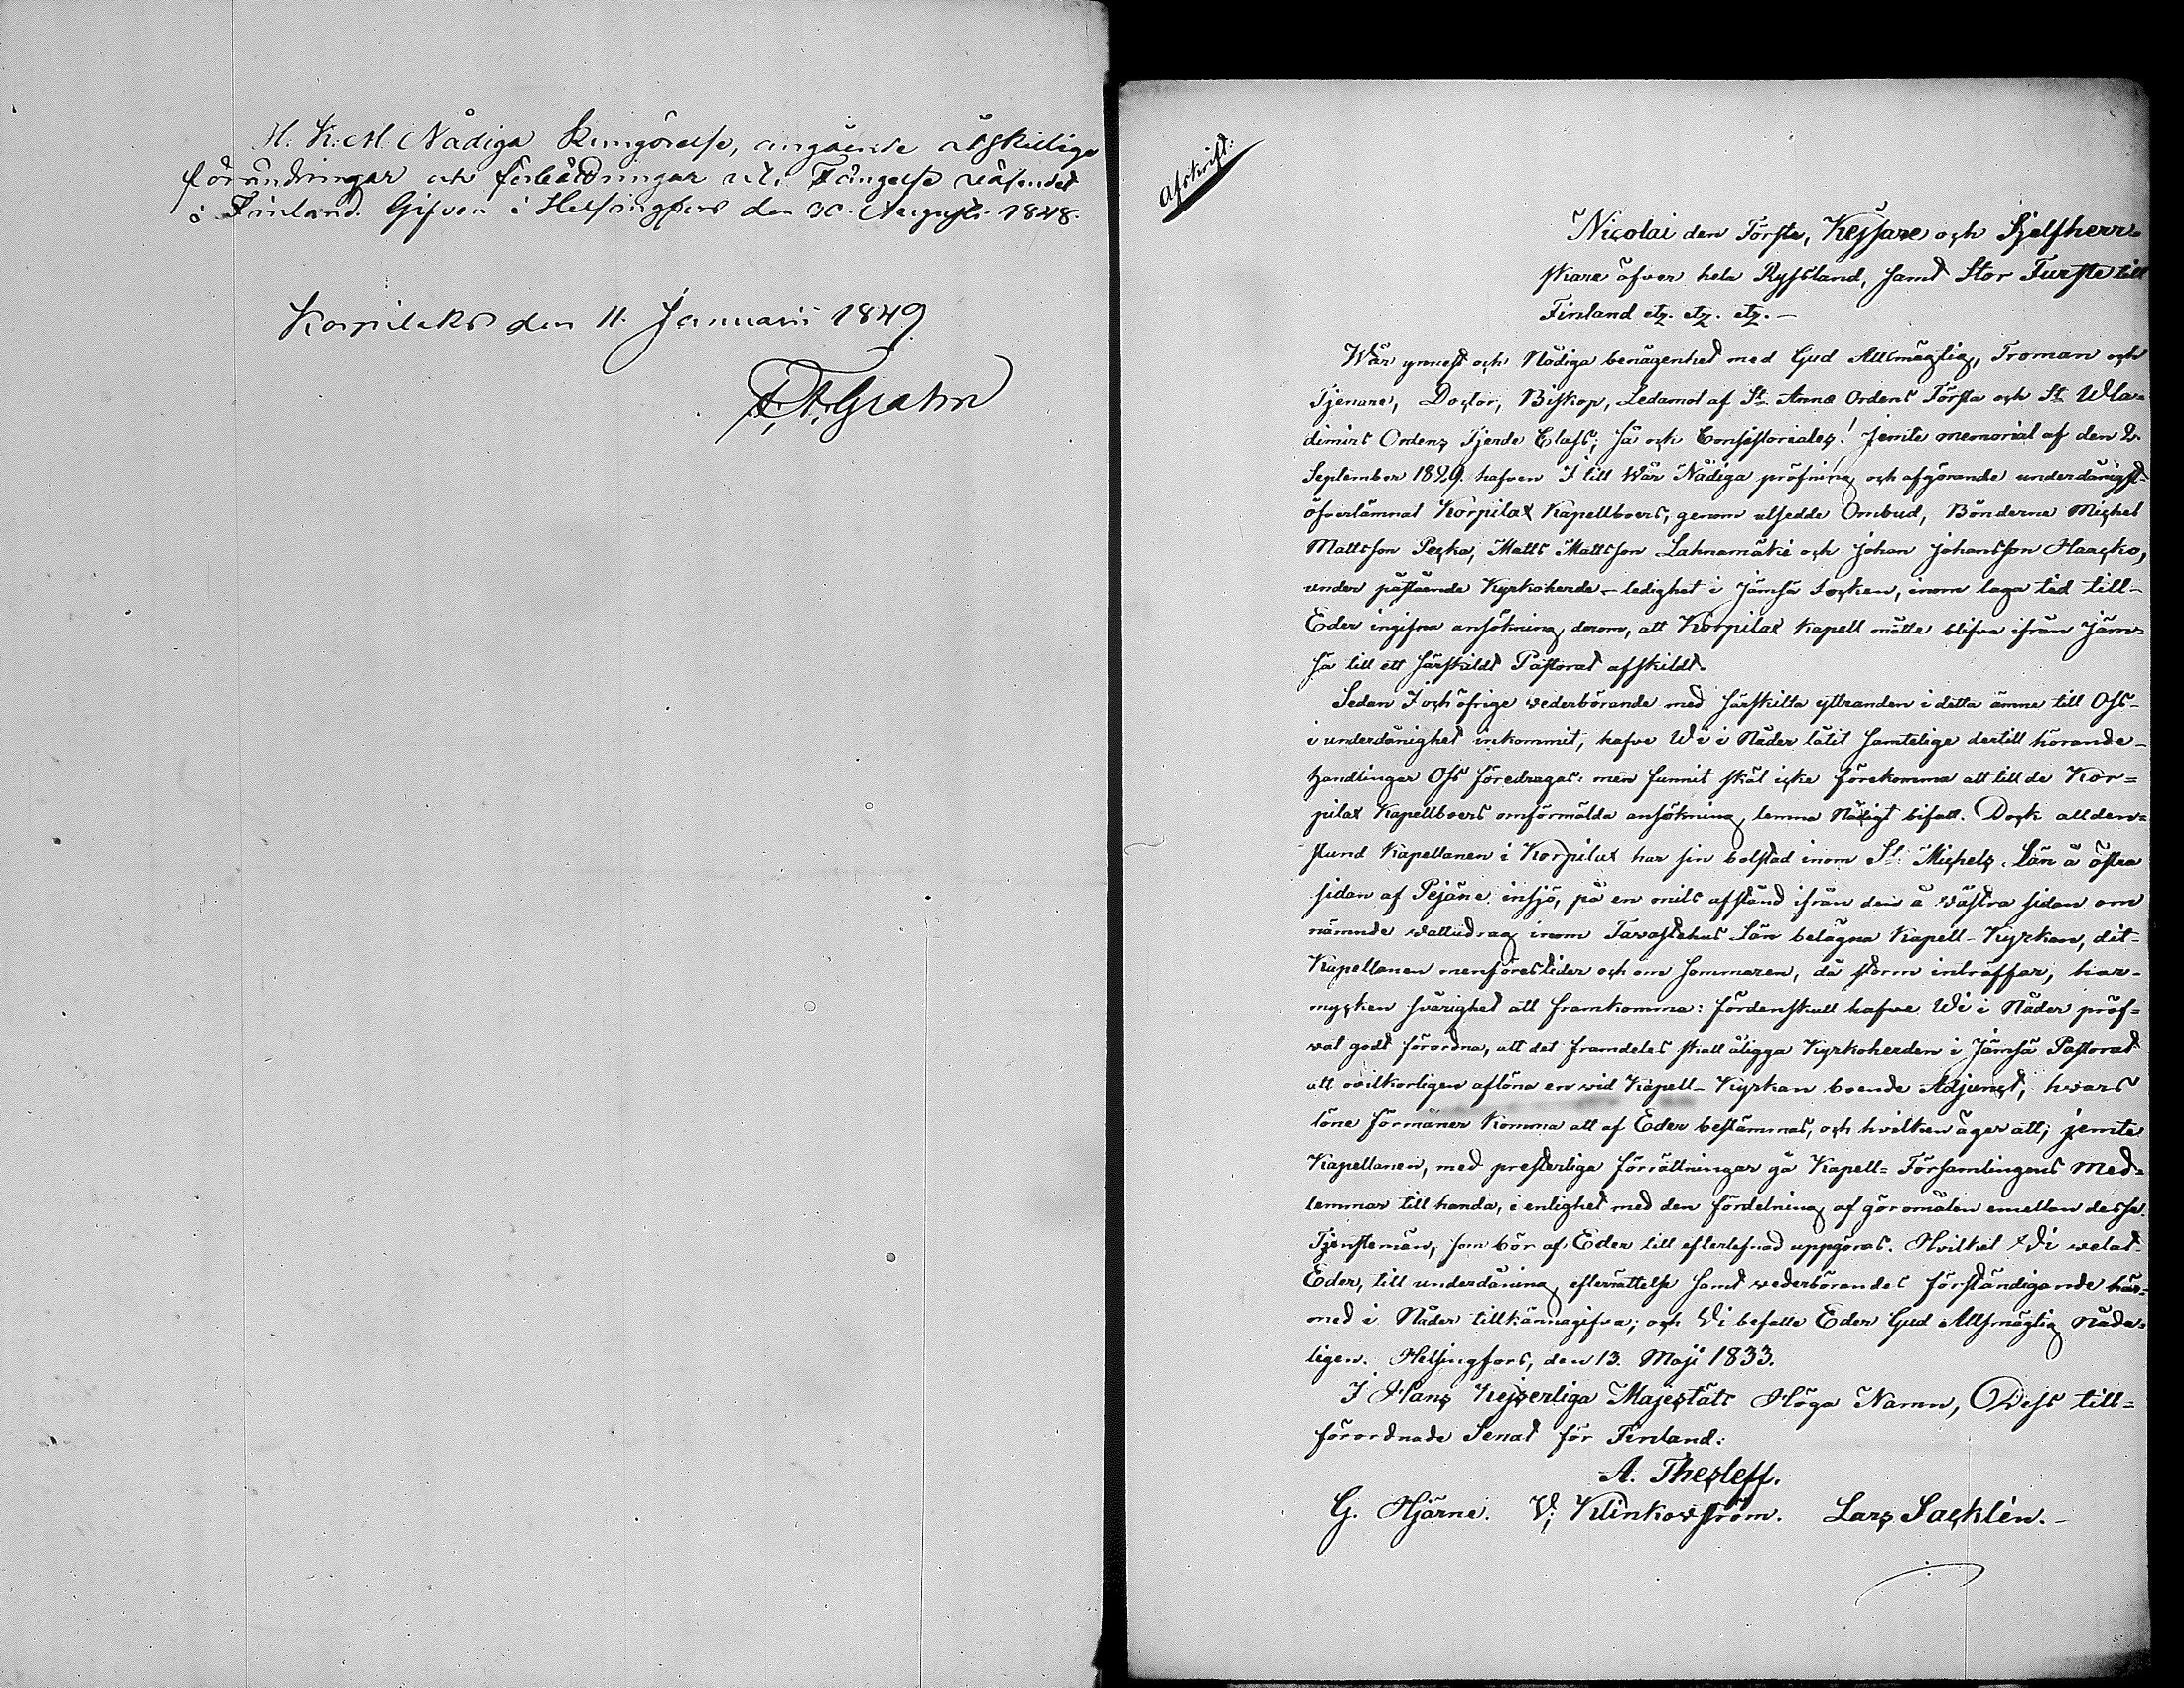 H. K. M. Nådiga Kungörelse, angående åtskillige
förändringar och förbättringar uti Fängelse väsendet
i Finland. Gifven i Helsingfors den 30. Augusti 1848.
Korpilaks den 11. Januarii 1849.
Grahn
Afskrift:
Nicolai den Förste, Kejsare och Sjelfherr=
skare öfver hela Ryssland, samt Stor Furste till
Finland etz. etz. etz. –
Wår ynnest och Nådiga benägenhet med Gud Allsmägtig, Troman och
Tjenare, Doctor, Biskop, Ledamot af St. Annæ Ordens Första och St Wla=
dimirs Ordens Fjerde Class; så ock Consistoriales! Jemte memorial af den 2.
September 1829. hafven I till Wår Nådiga pröfning och afgörande underdånigst
öfverlämnat Korpilax Kapellboers, genom utsedde Ombud, Bönderne Michel
Mattsson Pecka, Matts Mattsson Lahnamäki och Johan Johansson Haacko,
under påstående Kyrkoherde-ledighet i Jämsä Socken, inom laga tid till
Eder ingifna ansökning derom, att Korpilax Kapell måtte blifva ifrån Jäm=
sä till ett särskildt Pastorat afskildt.
Sedan I och öfrige vederbörande med särskilta yttranden i detta ämne till Oss
i underdånighet inkommit, hafve Wi i Nåder låtit samtelige dertill hörande
handlingar Oss föredragas: men funnit skäl icke förekomma att till de Kor=
pilax Kapellboers omförmälda ansökning lemna Nådigt bifall. Dock allden=
stund Kapellanen i Korpilax har sin bolstad inom St. Michels Län å östra
sidan af Pejäne insjö, på en mils afstånd ifrån den å västra sidan om
nämnde vattudrag inom Tavastehus Län belägna Kapell-Kyrkan, dit
Kapellanen menförestider och om sommaren, då storm inträffar, har
mycken svårighet att framkomma: fördenskull hafve Wi i Nåder pröf=
vat godt förordna, att det framdeles skall åligga Kyrkoherden i Jämsä Pastorat
att ovilkorligen aflöna en vid Kapell-Kyrkan boende Adjunct, hvars
löne förmåner komma att af Eder bestämmas, och hvilken äger att, jemte
Kapellanen, med presterliga förrättningar gå Kapell-Församlingens Med=
lemmar till handa, i enlighet med den fördelning af göromålen emellan desse
Tjenstemän, som bör af Eder till efterlefnad uppgöras. Hvilket Wi velat
Eder, till underdånig efterrättelse samt vederbörandes förständigande här=
med i Nåder tillkännagifva; och Wi befalle Eder Gud Allsmägtig Nåde=
ligen. Helsingfors, den 13. Maji 1833.
I Hans Kejserliga Majestäts Höga Namn, Dess till=
förordnade Senat för Finland:
A. Thesleff.
G. Hjärne. V. Klinkowström. Lars Sacklén. –